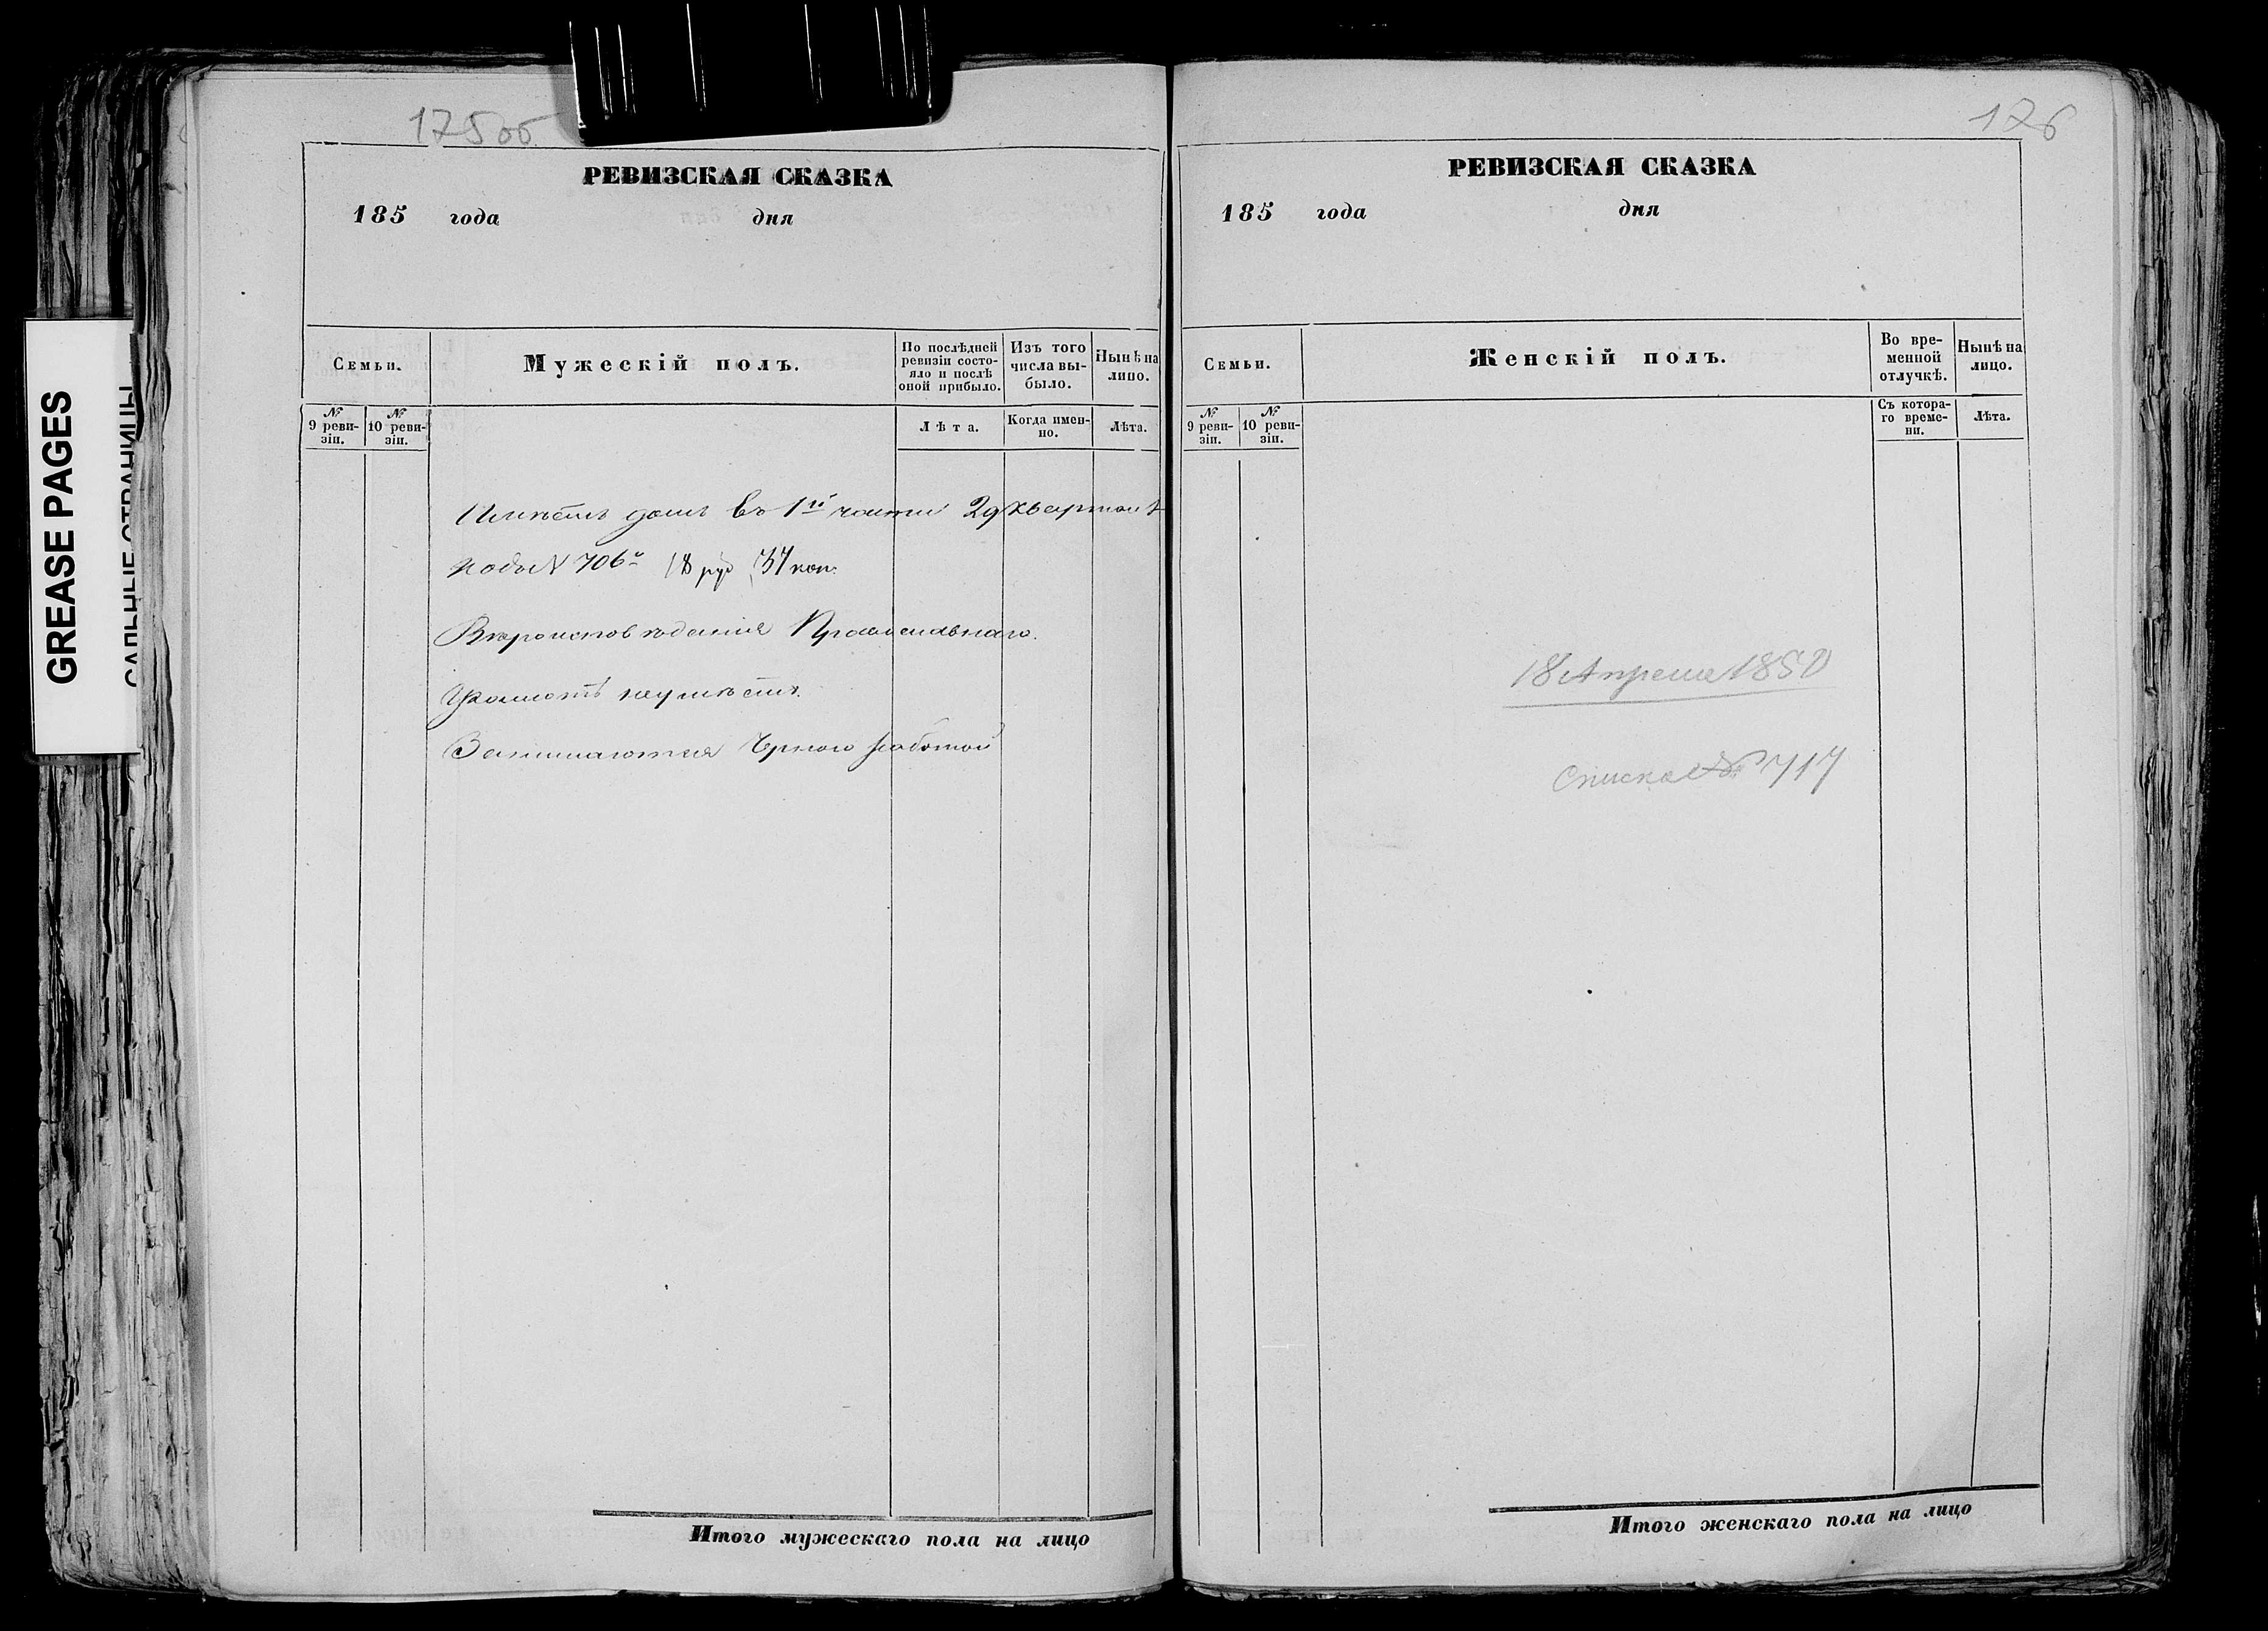 GREASE PAGES
САЛЬНЫЕ СТРАНИЦЫ
175об
РЕВИЗСКАЯ СКАЗКА
185 года дня
Семьи.
Мужескій полъ.
По послѣдней ревизіи состо-
яло и послѣ
оной прибыло.
Изъ того
числа вы-
было.
Нынѣ на
лицо.
№
9 реви-
зіи.
№
10 реви-
зіи.
Лѣта.
Когда имен-
но.
Лѣта.
Имѣетъ домъ въ 1й части 2 квартал
подъ N 706м 18 руб 57 коп.
Вѣроисповѣданія Православнаго.
Грамотѣ неумѣетъ.
Занимаются Черною работой
Итого мужескаго пола на лицо
176
РЕВИЗСКАЯ СКАЗКА
185 года дня
Семьи.
Женскій полъ.
Во вре-
менной
отлучкѣ.
Нынѣ на
лицо.
№
9 реви-
зіи.
№
10 реви-
зіи.
Съ котора-
го време-
ни.
Лѣта.
18 Апреля 1850
Списка № 717
Итого женскаго пола на лицо